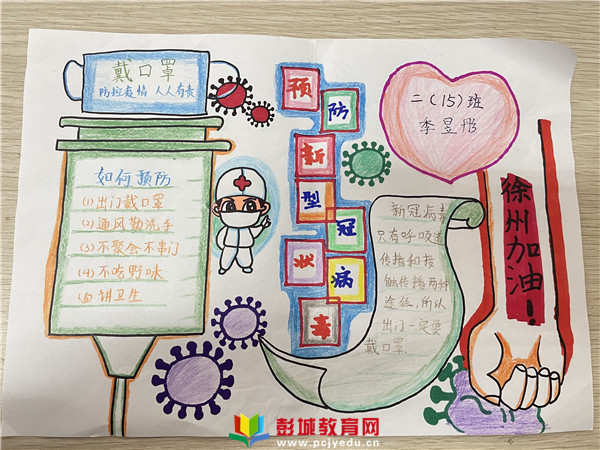 戴口罩
防控疫情 人人有责
如何预防
(1)出门戴口罩
(2)通风勤洗手
(3)不聚会不串门
(4)不吃野味
(5)讲卫生
预
防
新
型
冠
状
病
毒
二(15)班
李昱彤
新冠病毒
只有呼吸道
传播和接
触传播两种
途经,所以
出门一定要
戴口罩.
徐州加油!
彭城教育网
www.pcjyedu.cn